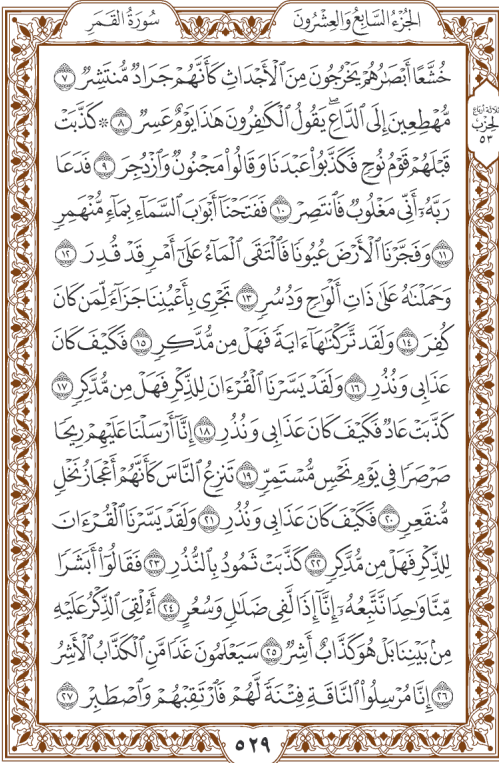 الجُزْءُ السَّابِعُ وَالعِشْرُونَ
سُورَةُ القَمَرِ
خُشَّعًا أَبْصَٰرُهُمْ يَخْرُجُونَ مِنَ ٱلْأَجْدَاثِ كَأَنَّهُمْ جَرَادٌ مُّنتَشِرٌ ٧
مُّهْطِعِينَ إِلَى ٱلدَّاعِ ۖ يَقُولُ ٱلْكَٰفِرُونَ هَٰذَا يَوْمٌ عَسِرٌ ٨ ۞ كَذَّبَتْ
قَبْلَهُمْ قَوْمُ نُوحٍ فَكَذَّبُوا۟ عَبْدَنَا وَقَالُوا۟ مَجْنُونٌ وَٱزْدُجِرَ ٩ فَدَعَا
رَبَّهُۥٓ أَنِّى مَغْلُوبٌ فَٱنتَصِرْ ١٠ فَفَتَحْنَآ أَبْوَٰبَ ٱلسَّمَآءِ بِمَآءٍ مُّنْهَمِرٍ
١١ وَفَجَّرْنَا ٱلْأَرْضَ عُيُونًا فَٱلْتَقَى ٱلْمَآءُ عَلَىٰٓ أَمْرٍ قَدْ قُدِرَ ١٢
وَحَمَلْنَٰهُ عَلَىٰ ذَاتِ أَلْوَٰحٍ وَدُسُرٍ ١٣ تَجْرِى بِأَعْيُنِنَا جَزَآءً لِّمَن كَانَ
كُفِرَ ١٤ وَلَقَد تَّرَكْنَٰهَآ ءَايَةً فَهَلْ مِن مُّدَّكِرٍ ١٥ فَكَيْفَ كَانَ
عَذَابِى وَنُذُرِ ١٦ وَلَقَدْ يَسَّرْنَا ٱلْقُرْءَانَ لِلذِّكْرِ فَهَلْ مِن مُّدَّكِرٍ ١٧
كَذَّبَتْ عَادٌ فَكَيْفَ كَانَ عَذَابِى وَنُذُرِ ١٨ إِنَّآ أَرْسَلْنَا عَلَيْهِمْ رِيحًا
صَرْصَرًا فِى يَوْمِ نَحْسٍ مُّسْتَمِرٍّ ١٩ تَنزِعُ ٱلنَّاسَ كَأَنَّهُمْ أَعْجَازُ نَخْلٍ
مُّنقَعِرٍ ٢٠ فَكَيْفَ كَانَ عَذَابِى وَنُذُرِ ٢١ وَلَقَدْ يَسَّرْنَا ٱلْقُرْءَانَ
لِلذِّكْرِ فَهَلْ مِن مُّدَّكِرٍ ٢٢ كَذَّبَتْ ثَمُودُ بِٱلنُّذُرِ ٢٣ فَقَالُوٓا۟ أَبَشَرًا
مِّنَّا وَٰحِدًا نَّتَّبِعُهُۥٓ إِنَّآ إِذًا لَّفِى ضَلَٰلٍ وَسُعُرٍ ٢٤ أَءُلْقِىَ ٱلذِّكْرُ عَلَيْهِ
مِنۢ بَيْنِنَا بَلْ هُوَ كَذَّابٌ أَشِرٌ ٢٥ سَيَعْلَمُونَ غَدًا مَّنِ ٱلْكَذَّابُ ٱلْأَشِرُ
٢٦ إِنَّا مُرْسِلُوا۟ ٱلنَّاقَةِ فِتْنَةً لَّهُمْ فَٱرْتَقِبْهُمْ وَٱصْطَبِرْ ٢٧
ثلاثة أرباع
الحِزْب
٥٣
٥٢٩